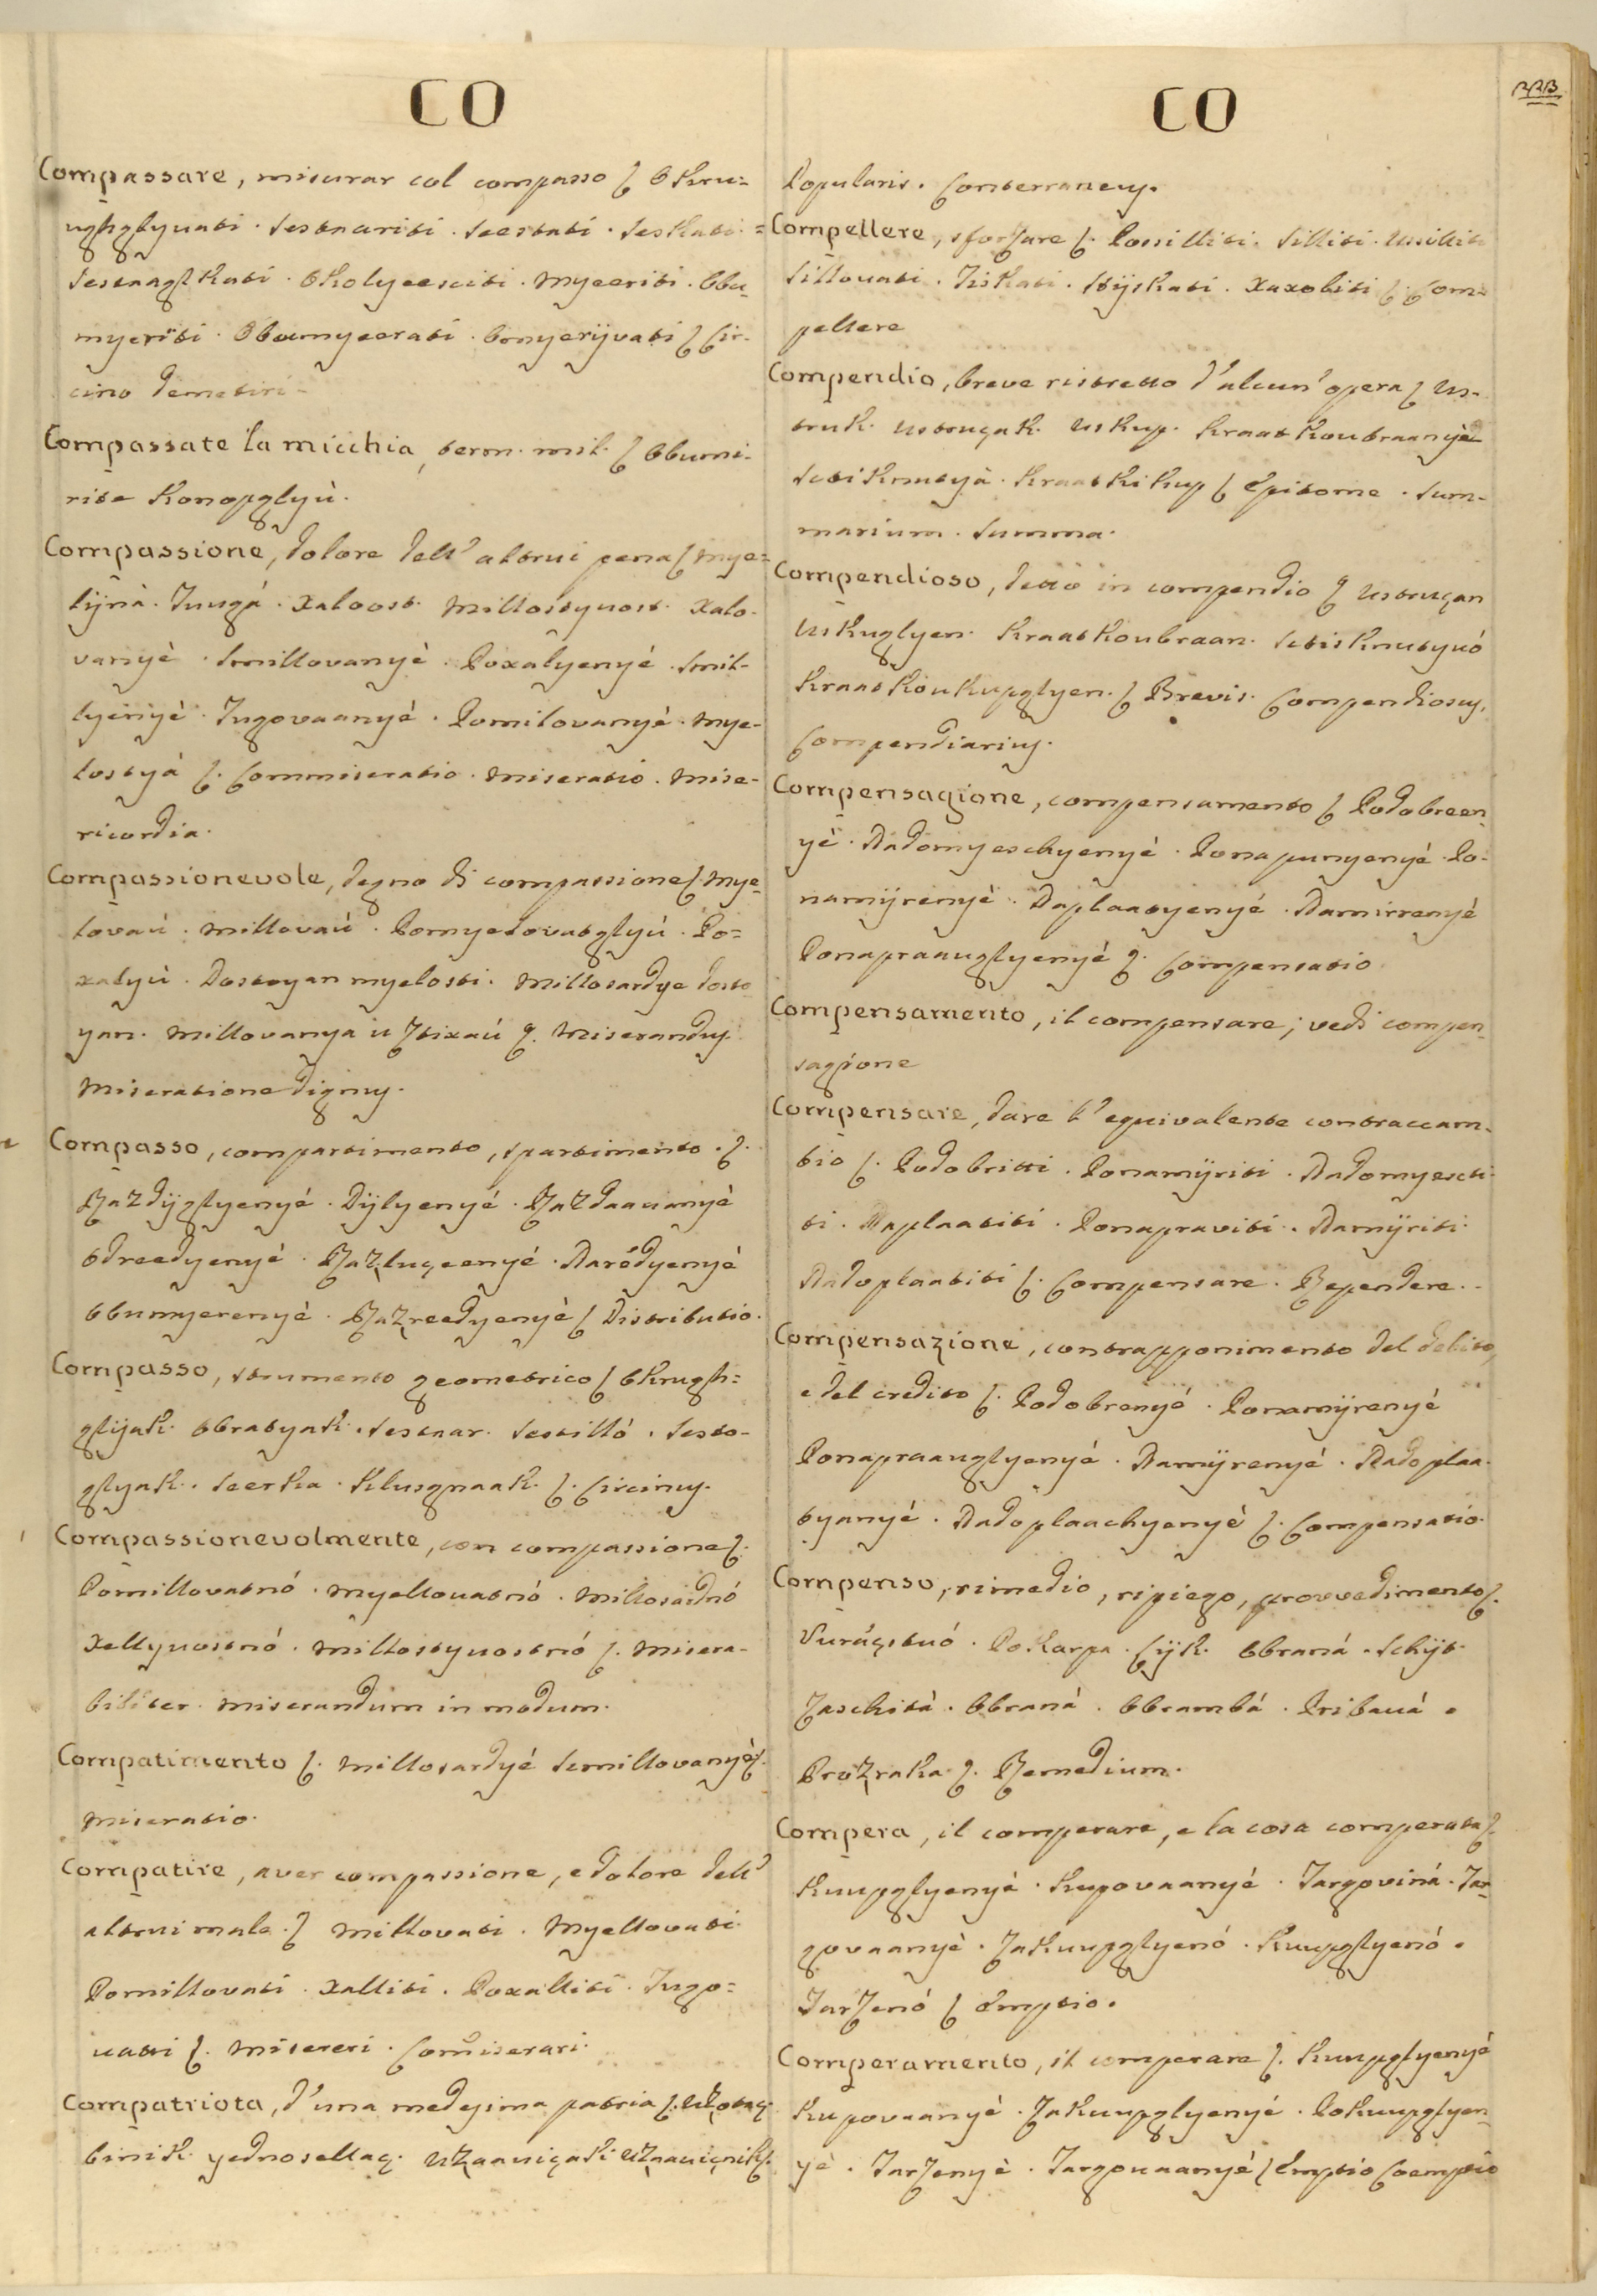 CO
Compassare, misurar col compasso ʃ. Okru=
ughglyuati. Sestaariti. Seestati. Seskati.=
Sestaaghkati. Okolyeesciti. Myeeriti. Obu-
myeriti. Oboumyeerati. Bomyerijvati ʃ Cir-
cino demetiri.
Compassate la micchia, term. mil. ʃ Obumi-
rite Konopglyù.
Compassione, dolore dell' altrui pena ʃ Mye=
lijnà. Tuugá. Xaloost. Millostyuost. Xalo-
vanyè. Smillovanyé. Poxalyenyé. Smil-
lyenyè. Tugovaanyé. Pomilovanyè. Mye-
lostyá ʃ. Commiseratio. Miseratio. Mise-
ricordia.
Compassionevole, degno di compassione ʃ. Mye-
lovaú. Millovaú. Pomyelovatglyú. Po=
xalyú. Dostoyan myelosti. Millosardye dosto
yan. Millovanya u ztixaú ʃ. Miserandus.
Miseratione dignus.
Compasso, compartimento, spartimento. ʃ.
Razdijglyenyé. Dijlyenyé. Razdaauanyè
Odreedyenyè. Razluçeenyé. Narédyenyè
Obumyerenyè. Razreedyenyè ʃ Distributio.
Compasso, strumento geometrico ʃ Okrugh=
glijak. Obratyak. Sestaar. Sestilló. Sesto-
glyak. Seerka. Klusgnaak. ʃ. Circinus.
Compassionevolmente, con compassione ʃ.
Pomillovatnó. Myellouatnó. Milosardnó
Xellyuostnó. Millostyuostnó ʃ. Misera-
biliter. Miserandum in modum.
Compatimento ʃ. Millosardyé Semillovanyè ʃ.
Miseratio.
Compatire, aver compassione, e dolore dell'
altrui male. ʃ Millovati. Myellovati.
Pomillovati. Xalliti. Poxalliti. Tugo=
uatti ʃ. Misereri. Comiserari.
Compatriota, d'una medesima patria ʃ.
binik. yednosellaç. Uzaauiçak. Uzaauiçnik ʃ.
CO
Popularis. Conterraneus.
Compellere, sforzare ʃ. Possilliti. Silliti. Ussilliti
Sillovati. Tiskati. Stijskati. Xaxoliti ʃ. Com=
pellere
Compendio, breve ristretto d'alcun'opera ʃ Us-
truk. Ustruçak. Uskup. Kraatkoubraanyè
Kraatkikup ʃ Epitome. Sum-
marium. Summa.
Compendioso, detto in compendio ʃ Ustruçan
Uskuglyen. Kraatkoubraan.
Kraatkoukupglyen. ʃ Brevis. Compendiosus.
Compendiarius.
Compensagione, compensamento ʃ Podobreen
yè. Nadomyeschyenyè. Ponapunyenyé. Po-
namijrenyè. Naplaatyenyé. Namirrenyè
Ponapraauglyenyé ʃ. Compensatio.
Compensamento, il compensare; vedi compen
sagione
Compensare, dare l'equivalente contraccam-
bio ʃ. Podobritti. Ponamijriti. Nadomyescti-
ti. Naplaatiti. Ponapraviti. Namijriti.
Nadoplaatiti ʃ. Compensare. Rependere.
Compensazione, contrapponimento del debito,
e del credito ʃ. Podobrenyé. Ponamijrenyé
Ponapraauglyenyé. Namijrenyé. Nadoplaa-
tyanyé. Nadoplaachyenyè ʃ. Compensatio.
Compenso, rimedio, ripiego, provvedimento ʃ.
Vuraçstuó. Pokarpa. Lijk. Obraná. Schijt.
Zaschità. Obraná. Obrambá. Pribauá.
Prozraka. ʃ. Remedium.
Compera, il comperare, e la cosa comperata ʃ.
Kuupglyenyè. Kupovaanyé. Targoviná. Tar-
govaanyè. Zakuupglyenó. Kuupglyenó.
Tarzenó ʃ Emptio.
Comperamento, il comperare ʃ. Kuupglyenyé
Kupovaanyè. Zakuupglyenyé. Pokuupglyen-
yè. Tarzenyè. Targouaanyé ʃ Emptio Coemptio